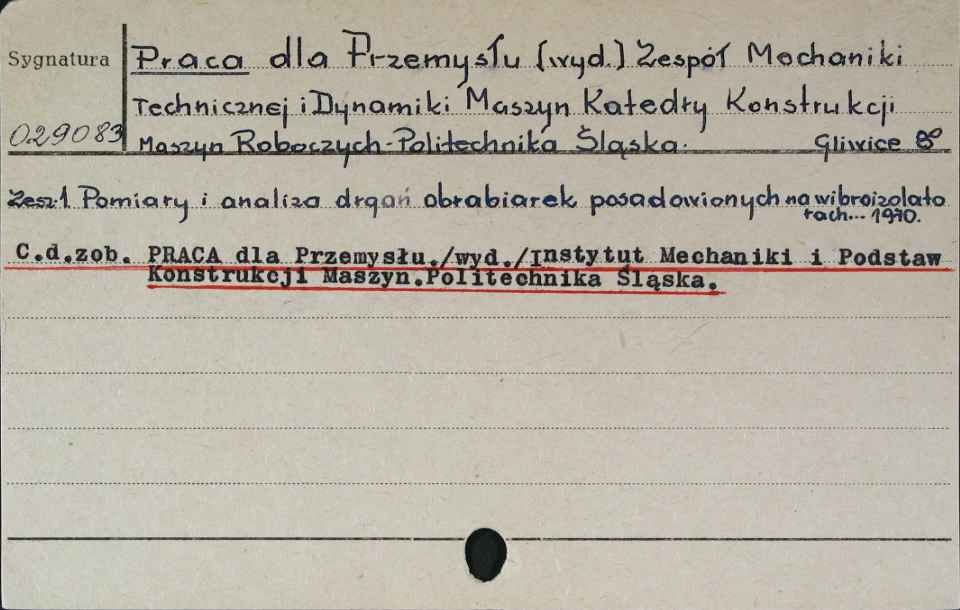 Sygnatura
029083
Praca dla Przemysłu [wyd.] Zespół Mechaniki
Technicznej i Dynamiki Maszyn Katedry Konstrukcji
Maszyn Roboczych-Politechnika Śląska. Gliwice 8°
Zesz.1 Pomiary i analiza drgań obrabiarek posadowionych na wibroizolato
rach... 1970.
C.d.zob. PRACA dla Przemysłu./wyd./Instytut Mechaniki i Podstaw
Konstrukcji Maszyn.Politechnika Śląska.